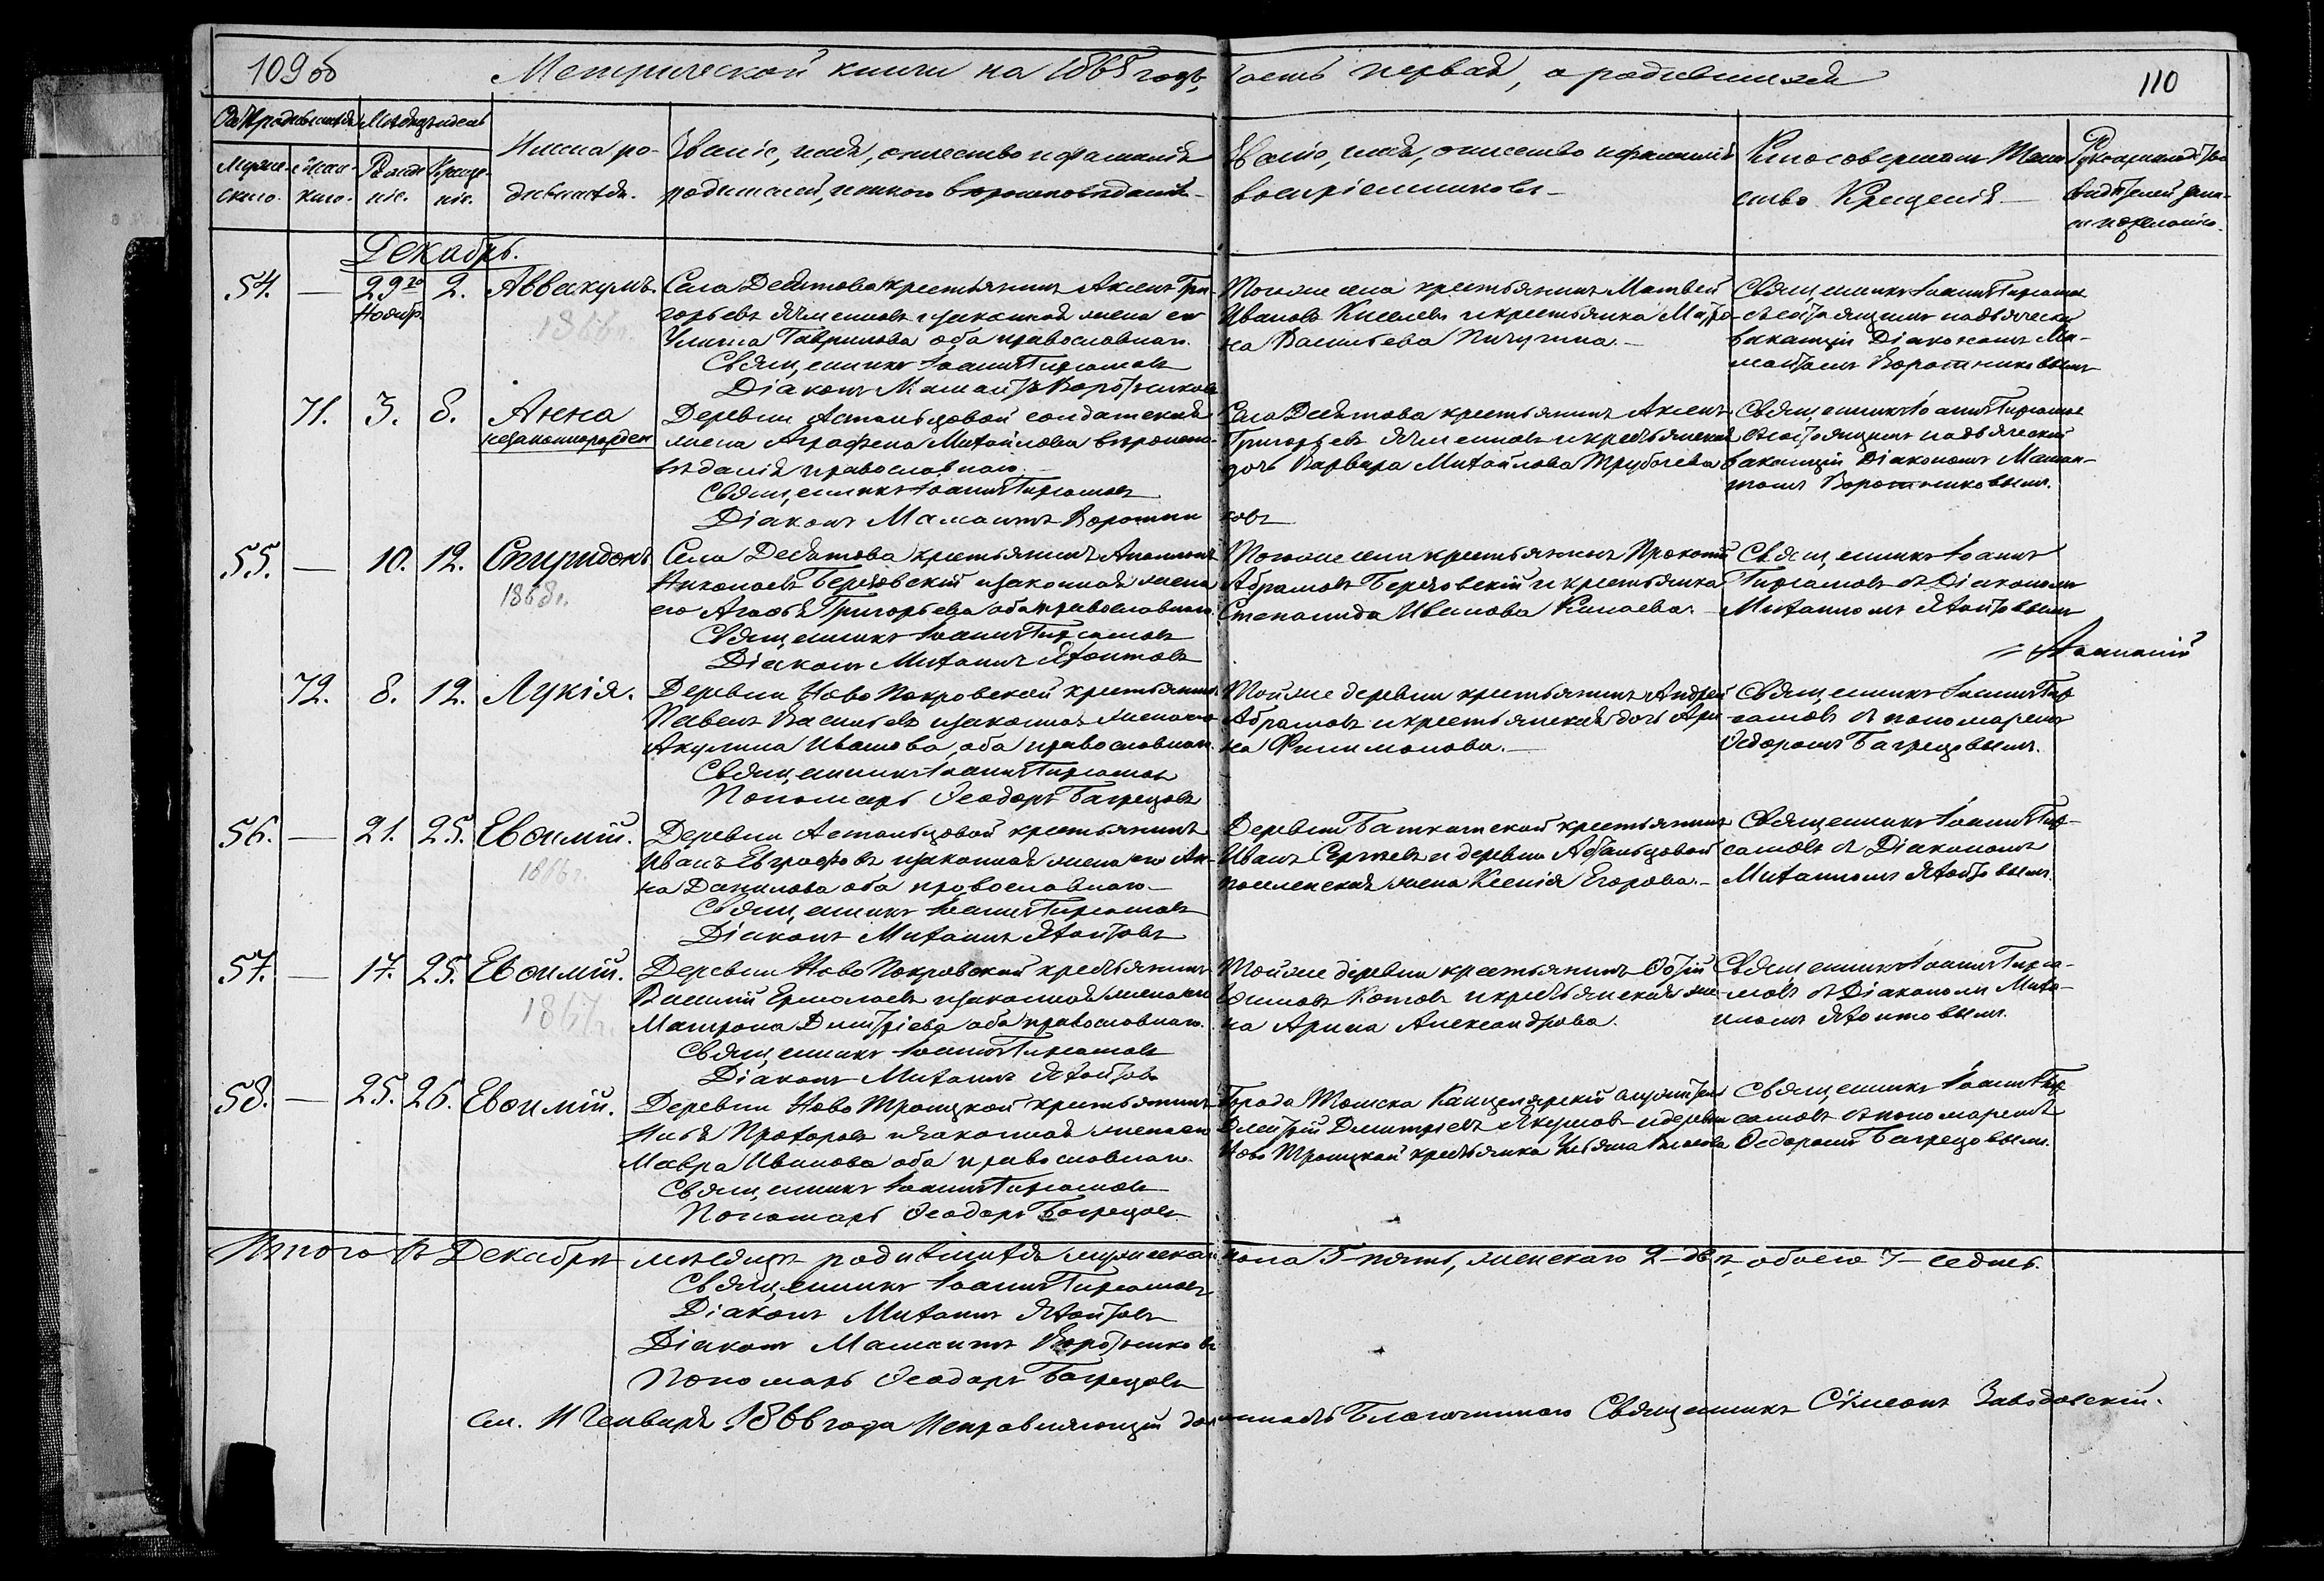 109 об
Метрической книги на 1865 годъ, часть первая, о родившихся
110
Мѣсяцъ и день
Муже-
скаго.
Жен-
скаго.
Рожде-
нiе.
Креще-
нiе.
Имена ро-
дившихся.
Званiе, имя, отчество и фамилiя
родителей, и какого вѣроисповѣданiя
Званiе, имя, отчество и фамилiя
воспрiемниковъ
Кто совершалъ Таин-
ство Крещенiя
Рукоприкладство
свидѣтелей запи-
си по желанiю.
Декабрь.
54. — 29го Ноябр. 2. Аввакумъ.
1866г.
Села Десятова крестьянинъ Аксенъ Гри-
горьевъ Ячменовъ и законная жена его
Улита Гаврилова оба православнаго.
Священникъ Iоаннъ
Дiаконъ Мамантъ Воротниковъ
Тогоже села крестьянинъ Матвей
Ивановъ Киселевъ и крестьянка Матро-
на Васильева Пичугина.
Священникъ Iоаннъ
вакансiи Дiакономъ Ма-
мантомъ Воротниковымъ
71. 3. 8. Анна
незаконнорожден
Деревни Астальцовой солдатская
жена Аграфена Михайлова вѣроиспо-
вѣданiя православнаго.
Священникъ Iоаннъ
Дiаконъ Мамантъ Воротниковъ
Села Десятова крестьянинъ Аксенъ
Григорьевъ Ячменовъ и крестьянская
дочь Варвара Михайлова Трубачева
Священникъ Iоаннъ
вакансiи Дiакономъ Маман-
томъ Воротниковымъ.
55. — 10. 12. Спиридонъ
1868г.
Села Десятова крестьянинъ Аполлонъ
Николаевъ Берговскiй и законная жена
его Агафья Григорьева оба православнаго.
Священникъ Iоаннъ
Дiаконъ Михаилъ
Тогоже села крестьянинъ Прокопiй
Абрамовъ Берговскiй и крестьянка
Степанида Иванова Кинаева.
Священникъ Iоаннъ
съ Дiакономъ
Михаиломъ
72. 8. 12. Лукiя.
Деревни Ново Покровской крестьянинъ
Павелъ Васильевъ и законная жена его
Акулина Ивановa, оба православнаго.
Священникъ Iоаннъ
Пономарь Ѳеодоръ Багрецовъ
Тойже деревни крестьянинъ Андрей
Абрамовъ и крестьянская дочь Ари-
на Филимонова.
Священникъ Iоаннъ
съ пономаремъ
Ѳедоромъ Багрецовымъ.
56. — 21. 25. Евѳимiй.
1866г.
Деревни Астальцовой крестьянинъ
Иванъ Евграфовъ и законная жена его Ан-
на Данилова оба православнаго
Священникъ Iоаннъ
Дiаконъ Михаилъ
Деревни Баткатской крестьянинъ
Иванъ Сергѣевъ и деревни Астальцовой
поселенская жена Ксенiя Егорова.
Священникъ Iоаннъ
съ Дiакономъ
Михаиломъ
57. — 17. 25. Евѳимiй.
1867г.
Деревни Ново Покровской крестьянинъ
Василiй Ермолаевъ и законная жена его
Матрона Дмитрiева оба православнаго.
Священникъ Iоаннъ
Дiаконъ Михаилъ
Тойже деревни крестьянинъ
Котовъ и крестьянская же-
на Арина Александрова.
Священникъ Iоаннъ
съ Дiакономъ Миха-
иломъ
58. — 25. 26. Евѳимiй.
Деревни Ново Троицкой крестьянинъ
Илья Прохоровъ и законная жена его
Мавра Иванова оба православнаго.
Священникъ Iоаннъ
Пономарь Ѳеодоръ Багрецовъ
Города Томска Канцелярскiй служитель
Дмитрiй Дмитрiевъ Якушовъ и деревни
Ново Троицкой крестьянка Ульяна
Священникъ Iоаннъ
съ пономаремъ
Ѳедоромъ Багрецовымъ.
Итого въ Декабрѣ мѣсяцѣ родившихся мужескаго пола 5-пять, женскаго 2-двѣ, обоего 7-седмь.
Священникъ Iоаннъ
Дiаконъ Михаилъ
Дiаконъ Мамантъ Воротниковъ
Пономарь Ѳеодоръ Багрецовъ
Генваря 1866 года Исправляющiй должность Благочиннаго Священникъ Сѵмеонъ Заводовскiй.